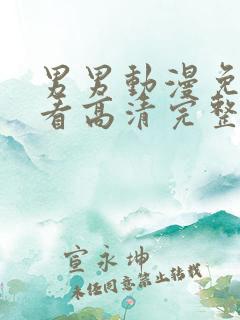 男男動漫免
看高清完整
宣永坤
未经同意禁止转载